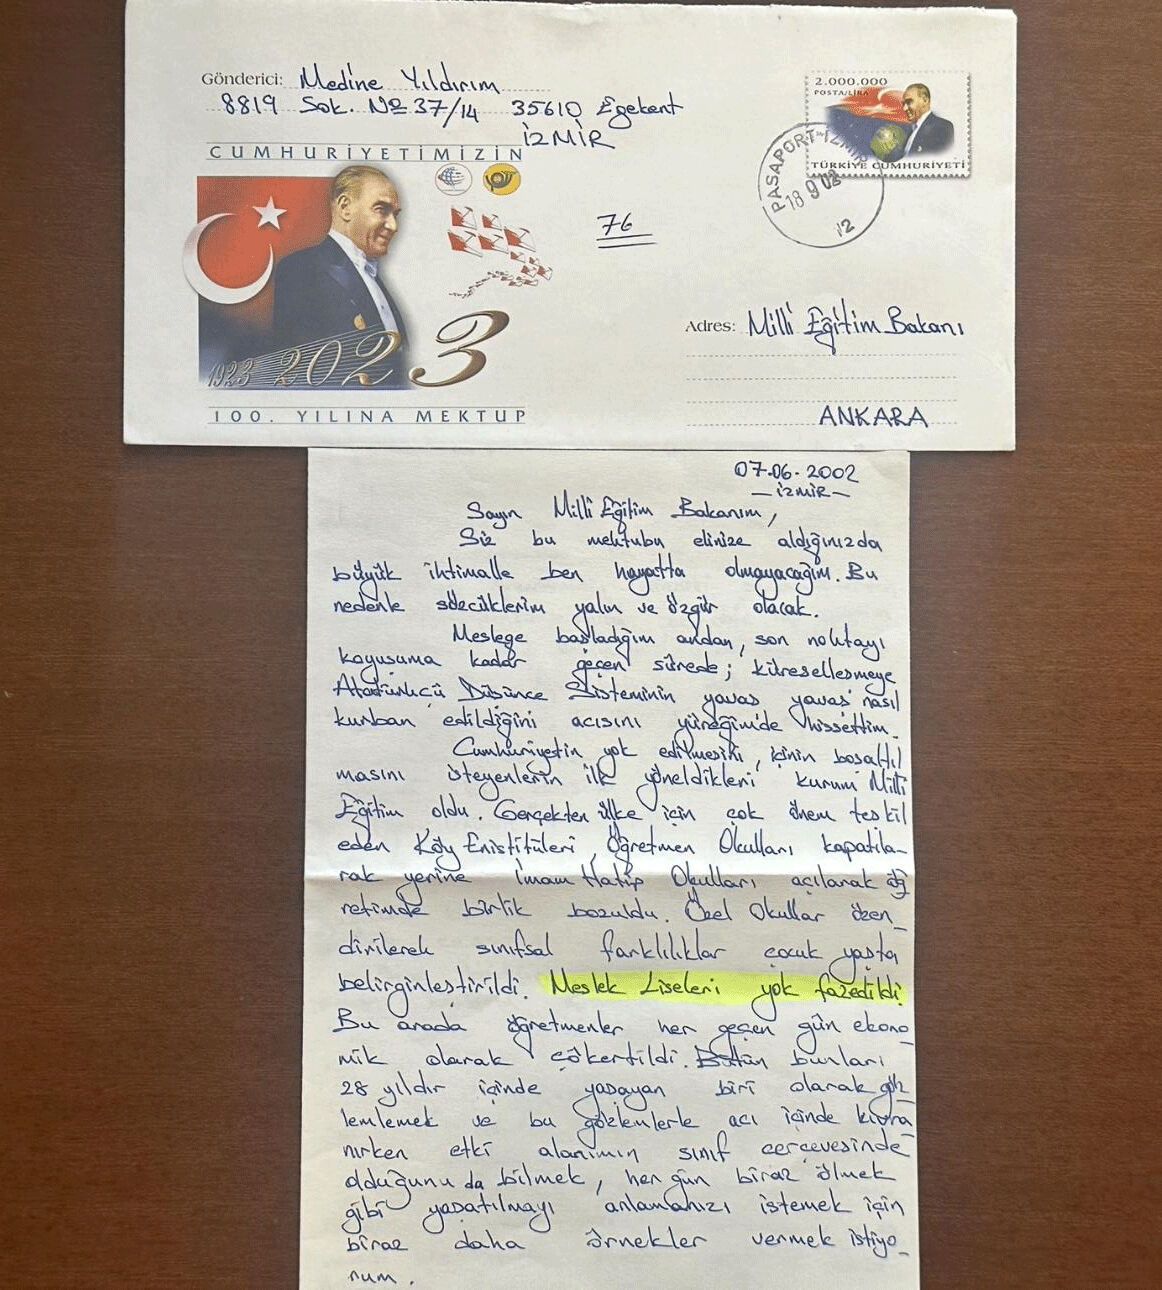 Gönderici: Medine Yıldırım
8819 Sok. No 37/14 35610 Egekent
İZMİR
CUMHURİYETİMİZİN
1923 2023
100. YILINA MEKTUP
76
2.000.000
POSTA/LİRA
TÜRKİYE CUMHURİYETİ
PASAPORT-İZMİR
18 9 02
12
Adres: Milli Eğitim Bakanı
ANKARA
07.06.2002
-İZMİR-
Sayın Milli Eğitim Bakanım,
Siz bu mektubu elinize aldığınızda
büyük ihtimalle ben hayatta olmayacağım. Bu
nedenle sözcüklerim yalın ve özgür olacak.
Mesleğe başladığım andan, son noktayı
koyuşuma kadar geçen sürede; küreselleşmeye
Atatürkçü Düşünce Sisteminin yavaş yavaş nasıl
kurban edildiğini acısını yüreğimde hissettim.
Cumhuriyetin yok edilmesini, içinin boşaltıl
masını isteyenlerin ilk yöneldikleri kurum Milli
Eğitim oldu. Gerçekten ülke için çok önem teşkil
eden Köy Enistitüleri, Öğretmen Okulları kapatıla-
rak yerine İmam Hatip Okulları açılarak öğ
retimde birlik bozuldu. Özel Okullar özen_
dirilerek sınıfsal farklılıklar çocuk yaşta
belirginleştirildi. Meslek Liseleri yok fazedildi
Bu arada öğretmenler her geçen gün ekono
mik olarak çökertildi. Bütün bunları
28 yıldır içinde yaşayan biri olarak göz
lemlemek ve bu gözlemlerle acı içinde kıvra_
nırken etki alanımın sınıf çerçevesinde
olduğunu da bilmek, her gün biraz ölmek
gibi yaşatılmayı anlamanızı istemek için
biraz daha örnekler vermek istiyo_
rum.